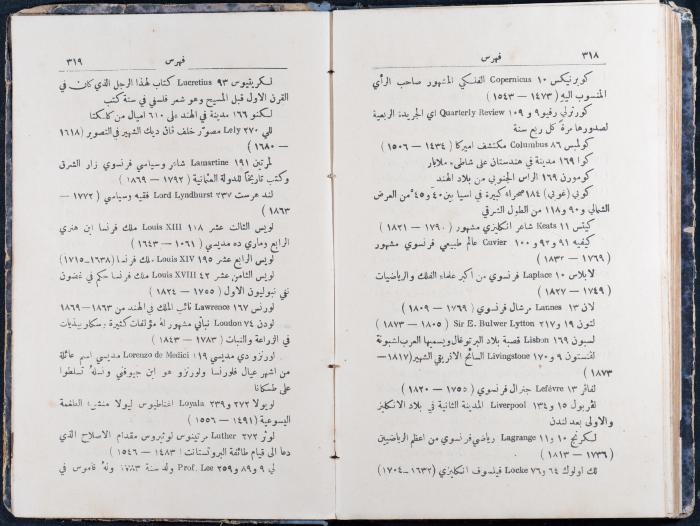 ٣١٨
فهرس
كوبرنيكس ١٠ Copernicus الفلكي المشهور صاحب الرأي
المنسوب اليه (١٤٧٣ — ١٥٤٣)
كورترلي رفيو ٩ و ١٠٩ Quarterly Review اي الجريدة الربعية
لصدورها مرة كل ربع سنة
كولمبس ٨٦ Columbus مكتشف اميركا (١٤٣٤ — ١٥٠٦)
كوا ١٦٩ مدينة في هندستان على شاطىء ملابار
كومورن ١٦٩ الراس الجنوبي من بلاد الهند
كوبي (غوبي) ١٨٤ صحراء كبيرة في اسيا بين ٤٠ و ٤٥ من العرض
الشمالي و ٩٠ و ١١٨ من الطول الشرقي
كيتس ١١ Keats شاعر انكليزي مشهور (١٧٩٠ — ١٨٢١)
كيفيه ٩١ و ٩٢ و ١٠٠ Cuvier عالم طبيعي فرنسوي مشهور
(١٧٦٩ — ١٨٣٢)
لابلاس ١٠ Laplace فرنسوي من اكبر علماء الفلك والرياضيات
(١٧٤٩ — ١٨٢٧)
لان ١٣ Lannes مرشال فرنسوي (١٧٦٩ — ١٨٠٩)
لتون ١٩ و ٢١٧ Sir E. Bulwer Lytton (١٨٠٥ — ١٨٧٣)
لسبون ١٦٩ Lisbon قصبة بلاد البرتوغال ويسميها العرب اشبونة
لفنستون ٩ و ١٧٠ Livingstone السائح الافريقي الشهير (١٨١٧—
١٨٧٣
لفافر ١٣ Lefévre جنرال فرنسوي (١٧٥٥ — ١٨٢٠)
لفربول ١٥ و ١٣٤ Liverpool المدينة الثانية في بلاد الانكليز
والاولى بعد لندن
لكرنج ١٠ و ١١ Lagrange رياضي فرنسوي من اعظم الرياضيين
(١٧٣٦ — ١٨١٣)
لك اولوك ٦٤ و ٧٦ Locke فيلسوف انكليزي (١٦٣٢—١٧٠٤)
فهرس
٣١٩
لكريتيوس ٩٣ Lucretius كتاب لهذا الرجل الذي كان في
القرن الاول قبل المسيح وهو شعر فلسفي في ستة كتب
لكنو ١٦٦ مدينة في الهند على ٦١٠ اميال من كلكتا
للي ٢٧٠ Lely مصور خلف فان ديك الشهير في التصوير (١٦١٨
— ١٦٨٠)
لمرتين ١٩١ Lamartine شاعر وسياسي فرنسوي زار الشرق
وكتب تاريخًا للدولة العثمانية (١٧٩٢ — ١٨٦٩)
لند هرست ٢٣٧ Lord Lyndhurst فقيه وسياسي (١٧٧٢ —
١٨٦٣)
لويس الثالث عشر ١٠٨ Louis XIII ملك فرنسا ابن هنري
الرابع وماري ده مديسي (١٠٦١ — ١٦٤٣)
لويس الرابع عشر ١٩٥ Louis XIV ملك فرنسا (١٦٣٨—١٧١٥)
لويس الثامن عشر ٤٢ Louis XVIII ملك فرنسا حكم في غضون
نفي نبوليون الاول (١٧٥٥ — ١٨٢٤)
لورنس ١٦٧ Lawrence نائب الملك في الهند من ١٨٦٣—١٨٦٩
لودن ٧٤ Loudon نباتي مشهور له مؤلفات كثيرة وسكلوبيذيات
في الزراعة والنبات (١٧٨٣ — ١٨٤٣)
لورنزو دي مديسي ١١٩ Lorenzo de Medici مديسي اسم عائلة
من اشهر عيال فلورنسا ولورنزو هو ابن جيوفني ونسله تسلطوا
على طسكانا
لويولا ٢٧٢ و ٢٣٩ Loyala اغناطيوس ليولا منشىء الطغمة
اليسوعية (١٤٩١ — ١٥٥٦)
لوثر ٢٧٢ Luther مرتينوس لوثيروس مقدام الاصلاح الذي
دعا الى قيام طائفة البروتستانت (١٤٨٣ — ١٥٤٦)
لي ٩ و ٨٩ و ٢٥٩ Prof. Lee ولد سنة ١٧٨٣ وله قاموس في